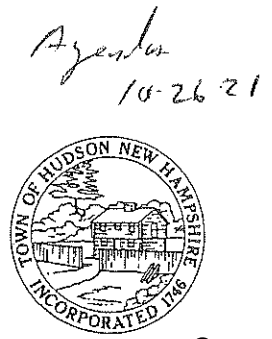 Agenda
10-26-21
TOWN OF HUDSON NEW HAMPSHIRE
INCORPORATED 1746